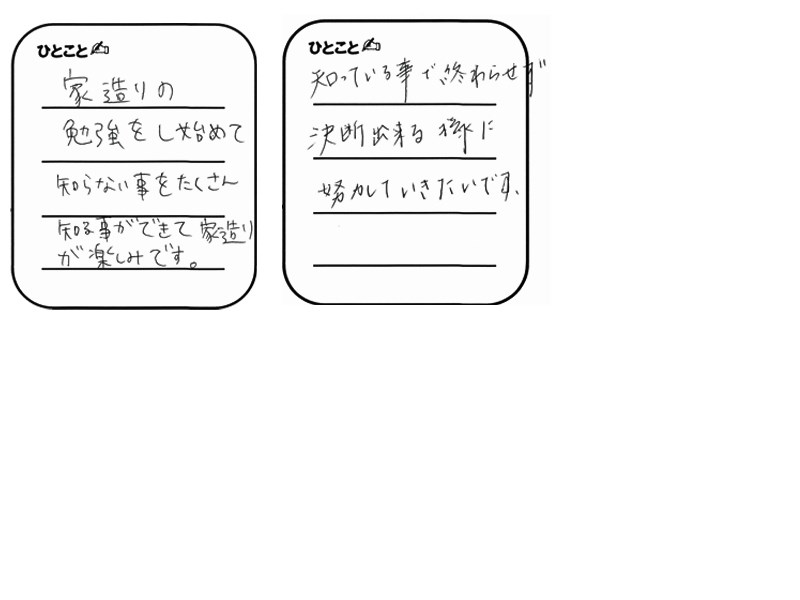 ひとこと✍
家造りの
勉強をし始めて
知らない事をたくさん
知る事ができて家造り
が楽しみです。
ひとこと✍
知っている事で終わらせず
決断出来る様に
努力していきたいです。